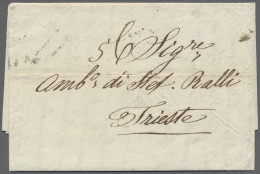 Sigre
Ambs di Stef. Ralli
Trieste